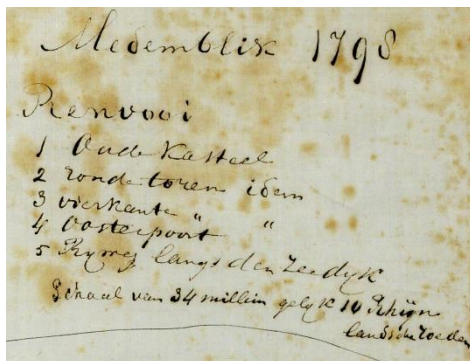 Medemblik 1798
Renvooi
1 Oude Kasteel
2 ronde toren idem
3 vierkante " "
4 Oosterpoort
5 Rijweg langs den Zeedyk
Schaal van 34 millim gelyk 10 Rhijn
landsche roeden